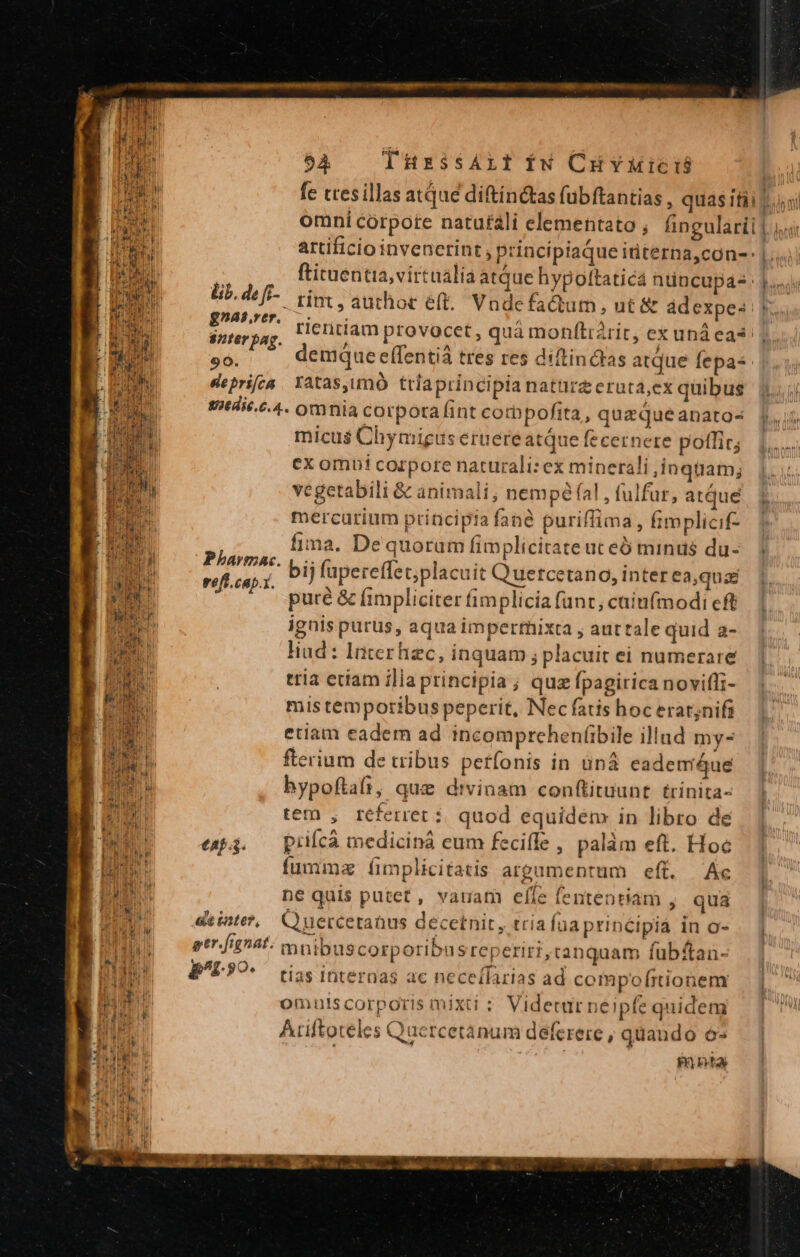 94 THESSALI IN CHYMICIS
ſe tres illas atque diſtinctas ſubſtantias, quas in
omni corpore naturali elementato, ſingulari
artificio invenerint, principiaque interna, con-
ſtituentia, virtualia atque hypoſtatica nuncupa-
lib. de ſi- rint, author eſt. Vnde factum, ut & ad expe-
gnat. ver. rientiam provocet, quâ monſtrârit, ex unâ ea-
inter pag. demque eſſentiâ tres res diſtinctas atque ſepa-
90.
de priſca ratas, imò tria principia naturæ eruta, ex quibus
medic. c. 4. omnia corpora ſint compoſita, quæque anato-
micus Chymicus eruere atque ſecernere poſſit,
ex omni corpore naturali: ex minerali, inquam,
vegetabili & animali, nempè ſal, ſulfur, atque
mercurium principia ſanè puriſſima, ſimpliciſ-
ſima. De quorum ſimplicitate ut eò minus du-
Pharmac. bij ſupereſſet, placuit Quercetano, inter ea, quæ
reſt. cap. 1. purè & ſimpliciter ſimplicia ſunt, cuiuſmodi eſt
ignis purus, aqua impermixta, aut tale quid a-
liud: Inter hæc, inquam, placuit ei numerare
tria etiam illa principia, quæ ſpagirica noviſſi-
mis temporibus peperit. Nec ſatis hoc erat, niſi
etiam eadem ad incomprehenſibile illud my-
ſterium de tribus perſonis in unâ eademque
hypoſtaſi, quæ divinam conſtituunt trinita-
tem, referret: quod equidem in libro de
cap. 3. priſcâ medicinâ eum feciſſe, palàm eſt. Hoc
ſummæ ſimplicitatis argumentum eſt. Ac
ne quis putet, vanam eſſe ſententiam, quâ
de inter. Quercetanus decernit, tria ſua principia in o-
ger. ſignat. mnibus corporibus reperiri, tanquam ſubſtan-
pag. 90. tias internas ac neceſſarias ad compoſitionem
omnis corporis mixti: Videtur ne ipſe quidem
Ariſtoteles Quercetanum deſerere, quando o-
mnia